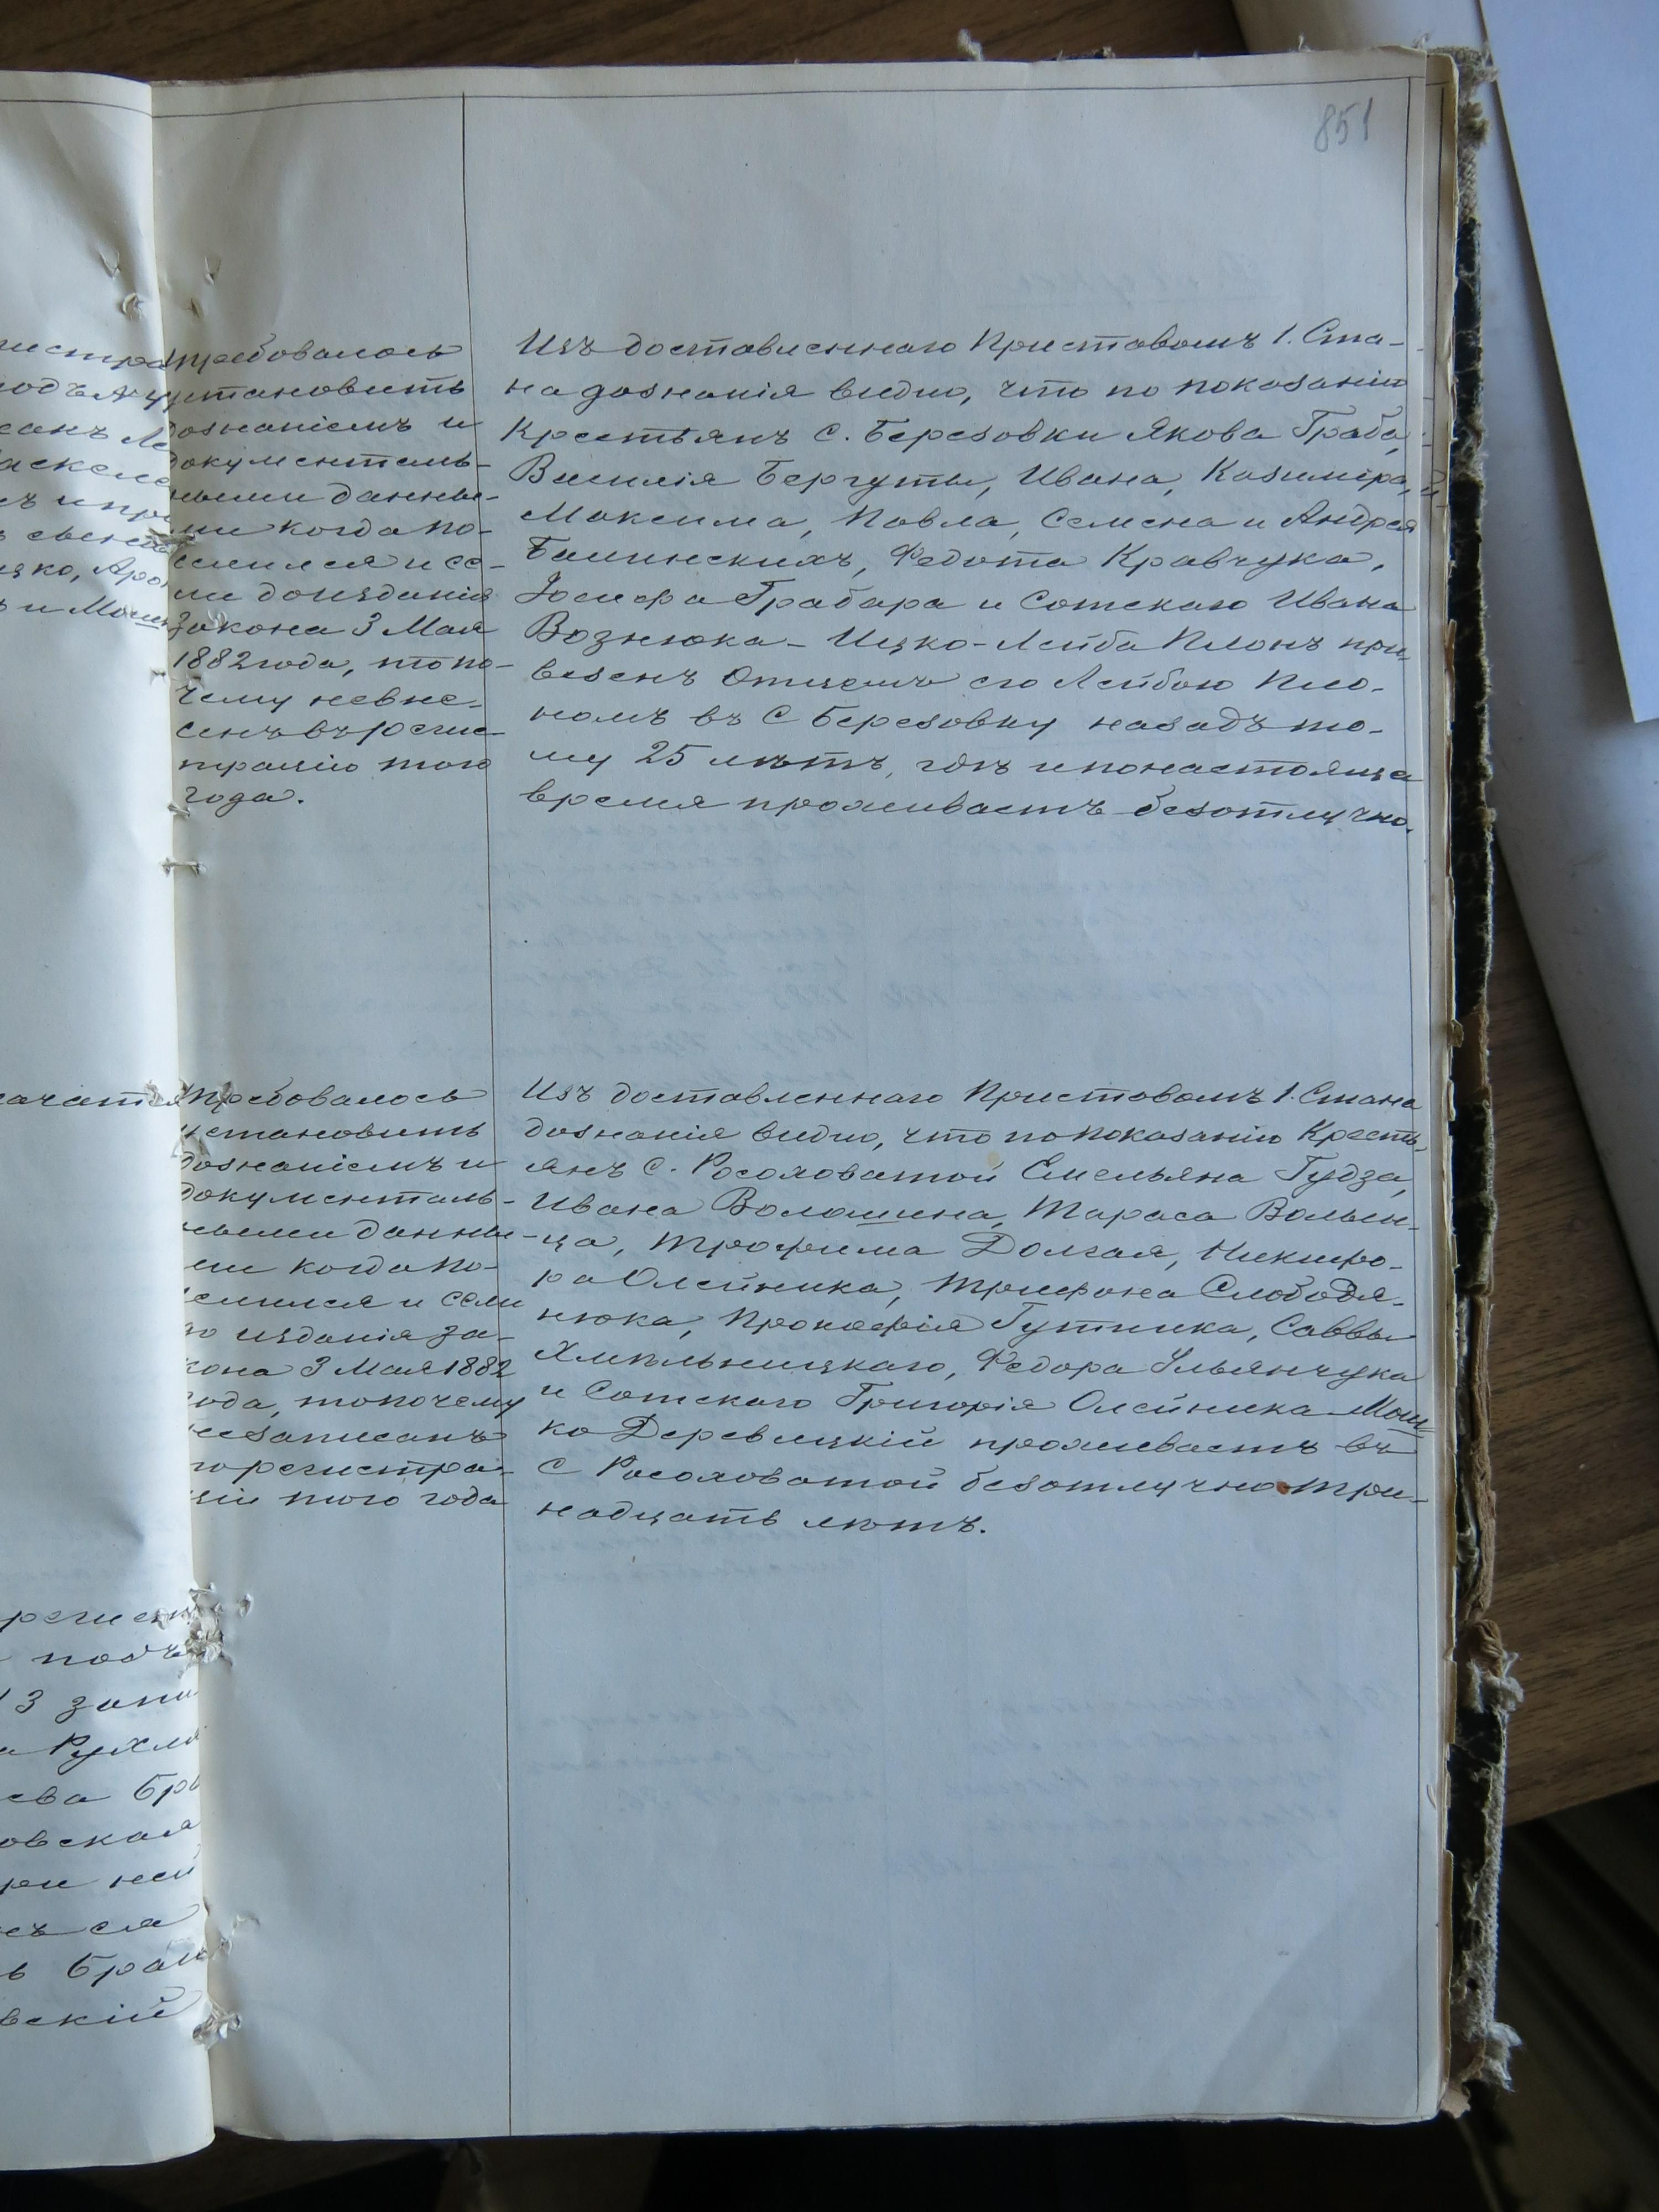 851
Требовалось
установить
дознаніемъ и
документаль-
ными данны-
ми когда по-
селился и ес-
ли до изданія
Закона 3 Мая
1882 года, то по-
чему невне-
сенъ въ регис-
трацію того
года.
Изъ доставленнаго Приставомъ 1. Ста-
на дознанія видно, что по показанію
Крестьянъ с. Березовки Якова Граба,
Василія Бергуты, Ивана, Казиміра,
Максима, Павла, Семена и Андрея
Балинскихъ, Федота Кравчука,
Іосифа Грабара и Сотскаго Ивана
Вознюка - Ицко-Лейба Плонъ при-
везенъ Отцемъ его Лейбою Пло-
номъ въ С Березовку назадъ то-
му 25 лѣтъ, гдѣ и по настояща
время проживаетъ безотлучно.
Требовалось
установить
дознаніемъ и
документаль-
ными данны-
ми когда по-
селился и если
до изданія за-
кона 3 Мая 1882
года, то почему
незаписанъ
по регистра-
ціи того года
Изъ доставленнаго Приставомъ 1. Стана
дознанія видно, что по показанію Кресть-
янъ С. Росоховатой Емельяна Гудза,
Ивана Волошина, Тараса Волын-
ца, Трофима Долгая, Никифо-
ра Олейника, Трифона Слободя-
нюка, Прокофія Гутника, Саввы
Хмѣльницкаго, Федора Ульянчука
и Сотскаго Григорія Олейника Мош-
ко Деревицкій проживаетъ въ
С Росоховатой безотлучно три-
надцать лѣтъ.